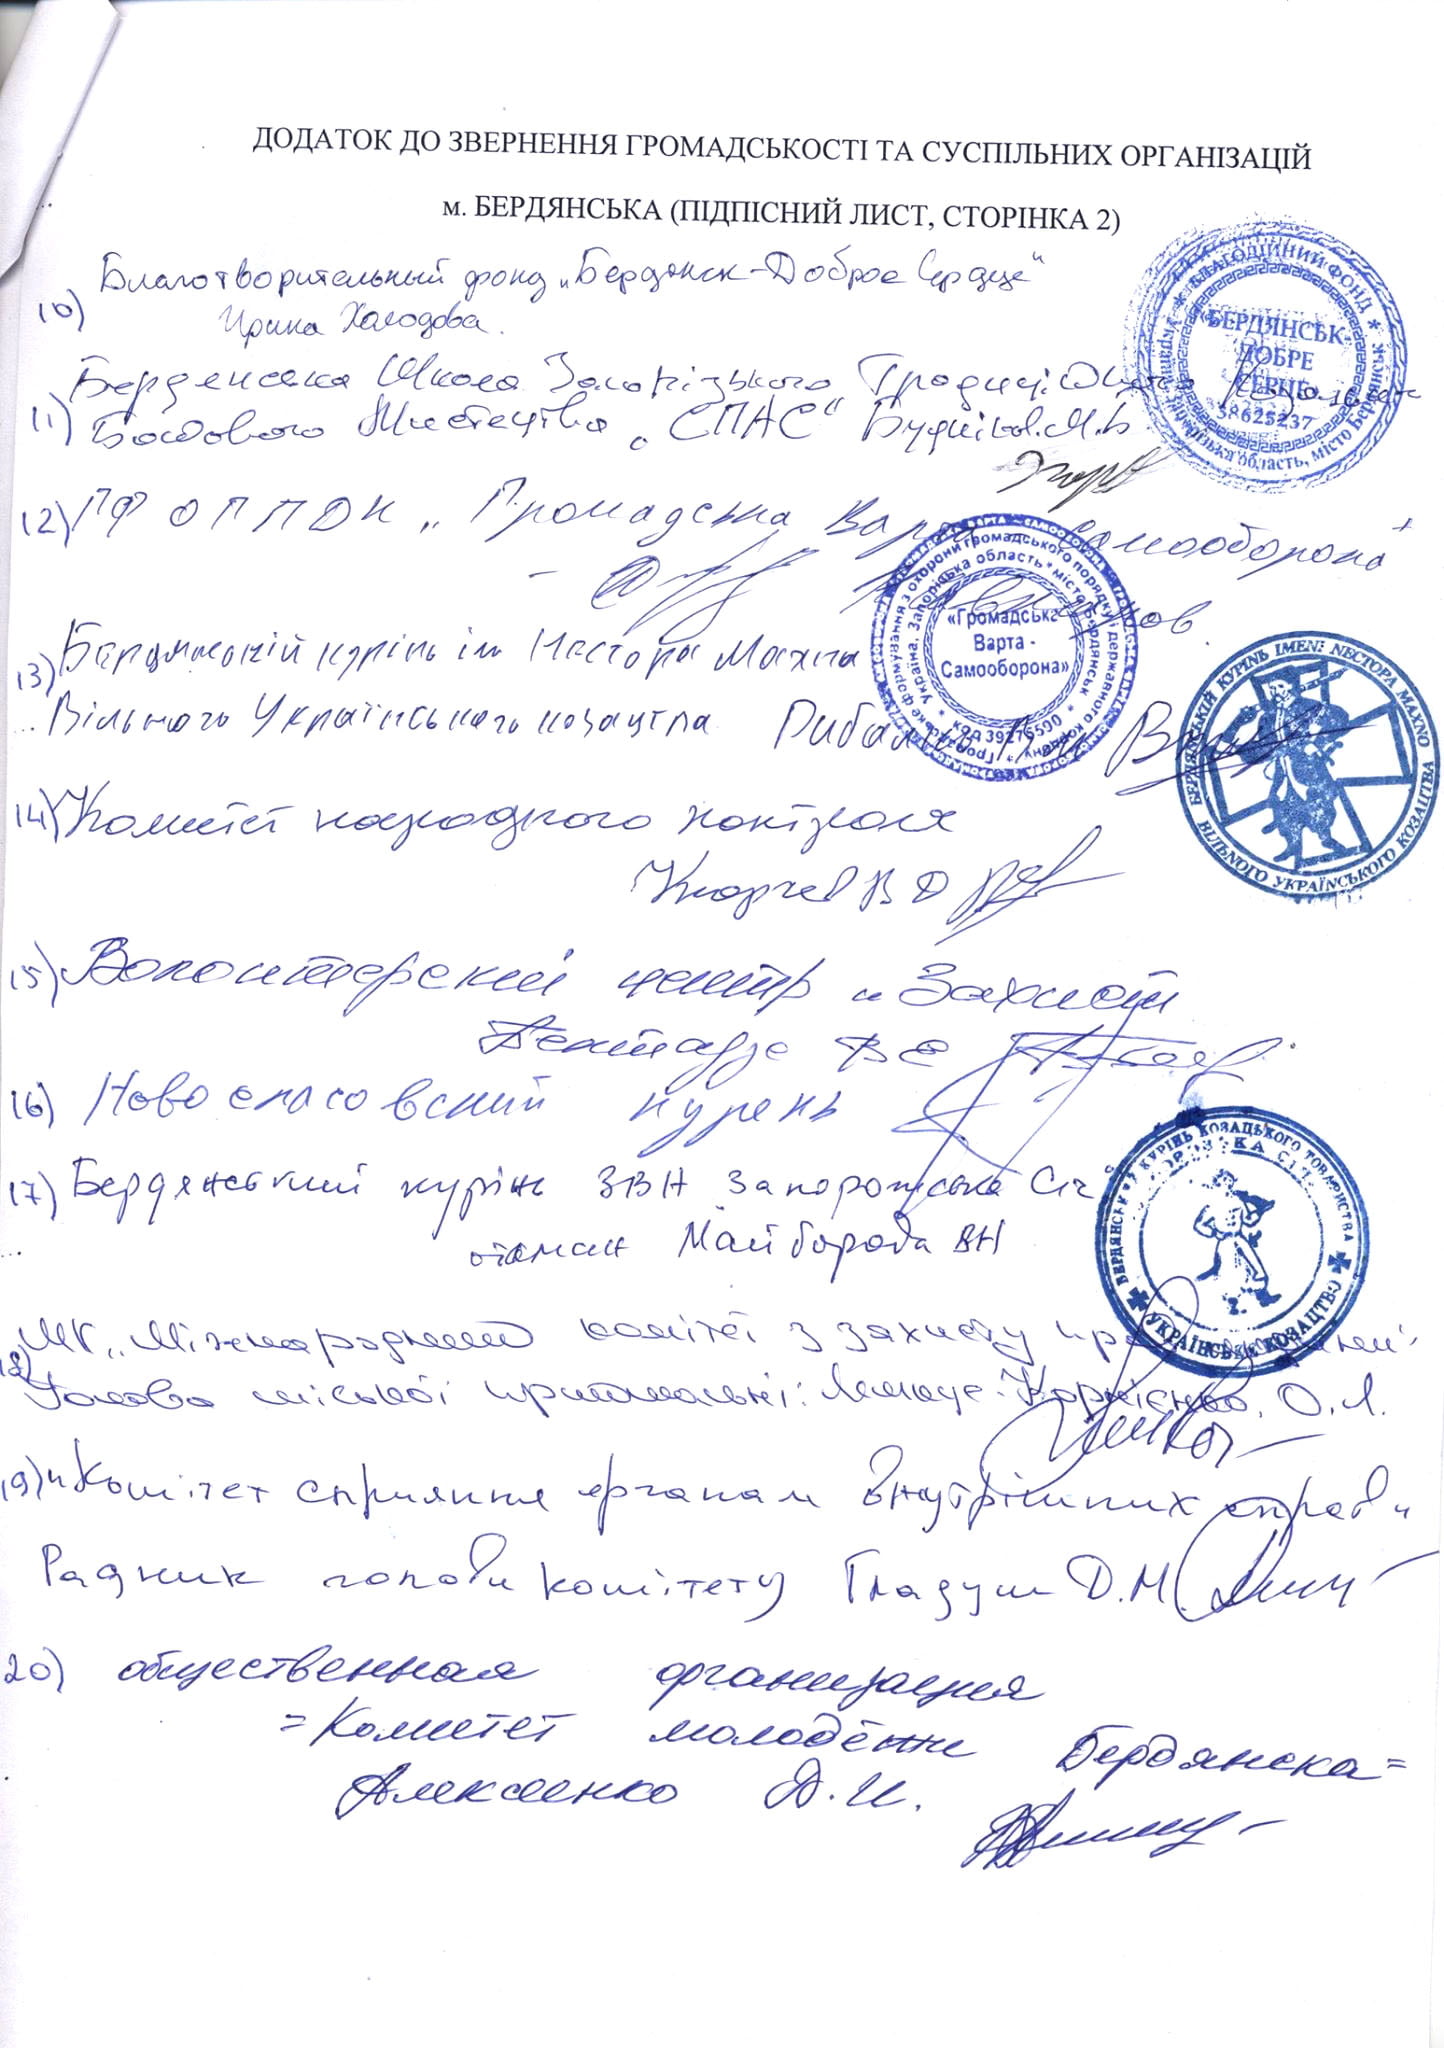 ДОДАТОК ДО ЗВЕРНЕННЯ ГРОМАДСЬКОСТІ ТА СУСПІЛЬНИХ ОРГАНІЗАЦІЙ
м. БЕРДЯНСЬКА (ПІДПІСНИЙ ЛИСТ, СТОРІНКА 2)
10) Благотворительный фонд „Бердянск-Доброе Сердце“
Ирина Холодова.
БЛАГОДІЙНИЙ ФОНД * Україна, Запорізька область, місто Бердянськ *
«БЕРДЯНСЬК-
ДОБРЕ
СЕРЦЕ»
38625237
11) Бердянська Школа Запорізького
Бойового Мистецтва „СПАС“
12) ГФ ОППДК „Громадська Варта Самооборона“
Громадське формування з охорони громадського порядку і державного кордону * Україна, Запорізька область * місто Бердянськ * код 39276590
«Громадська
Варта -
Самооборона»
13) Бердянський курінь ім Нестора Махна
Вільного Українського козацтва
БЕРДЯНСЬКІЙ КУРІНЬ ІМЕНІ NЕСТОРА МАХNО
ВІЛЬNОГО УКРАЇNСЬКОГО КОЗАЦТВА
14) Комитет народного контроля
В Д
15) Волонтерский центр „Захист
В Е
16) Новоспасовский курень
17) Бердянський курінь ЗВН Запорожська Січ
отаман Майборода ВН
БЕРДЯНСЬКИЙ КУРІНЬ КОЗАЦЬКОГО ТОВАРИСТВА
УКРАЇНСЬКЕ КОЗАЦТВО
18) „Міжнародний комітет з захисту прав
Голова міської приймальні: Корнієнко. О.Л.
19) "Комітет сприяння органам внутрішніх справ"
Радник голови комітету Гладуш Д.М.
20) общественная организация
=Комитет молодёжи Бердянска=
Алексеенко Д.И.